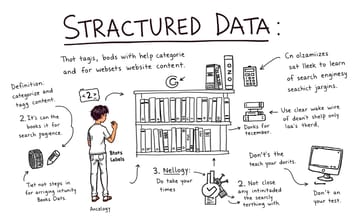 STRACTURED DATA:
Thot tagis, bods with help categorie
and for websets website content.
Cn olzamizes
sat lleek to learn
of search enginesy
seachict jargins.
Definition:
categorize and
tagg content.
<2>
2. It's can the
books it for
search pagience.
Stots
Labels
Use clear wake wire
of deanit shelp only
laa's therd,
Donks for
tecember.
Tet not steps in
for arriging intunity
Books Dats.
Ancology
3. Nellogy:
Do take your
times
2. Not close
any intinituded
the searcly
terthing with
Dont's the
teach your dorits.
Don't on
your test.